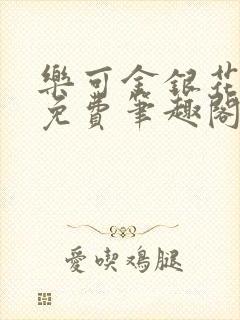 樂可金銀花
免費筆趣閣
愛喫鸡腿